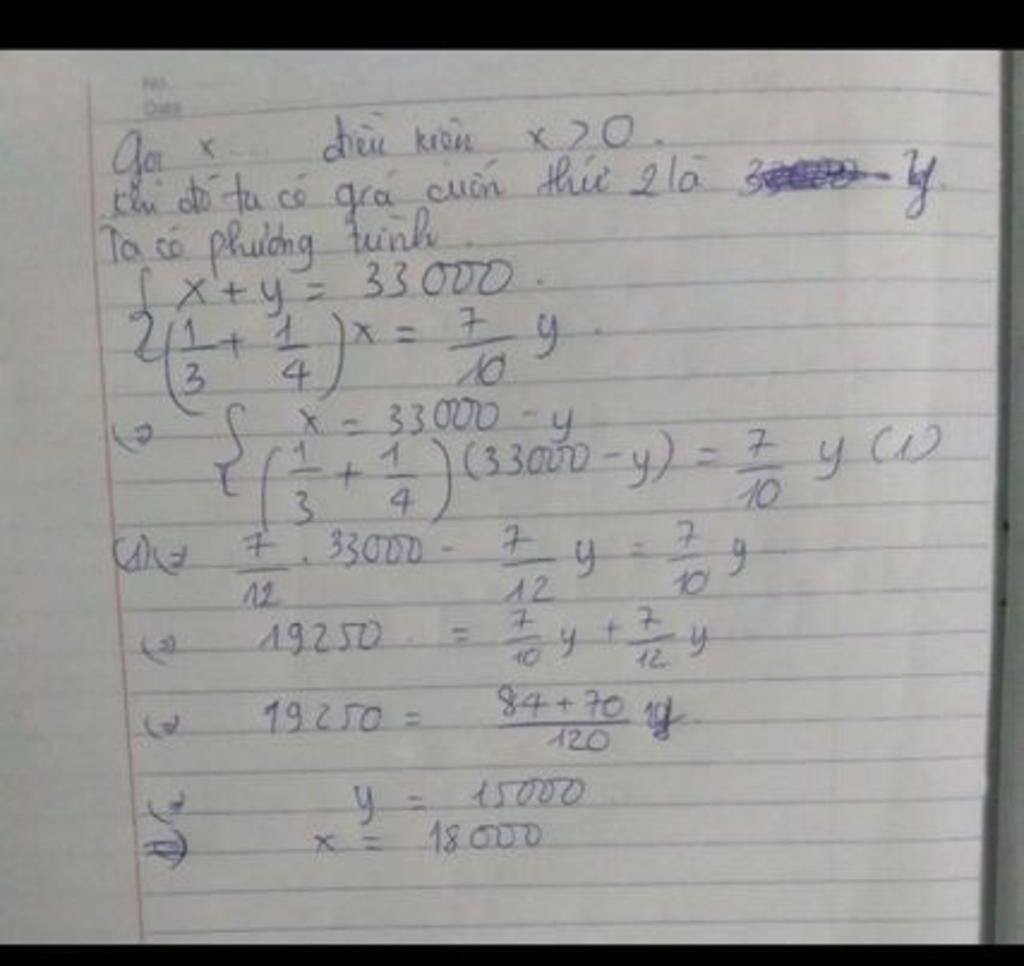 No.
Date
Gọi x... điều kiện x > 0.
Khi đó ta có giá cuốn thứ 2 là y.
Ta có phương trình.
{ x + y = 33000.
(1/3 + 1/4)x = 7/10 y.
(=> { x = 33000 - y
(1/3 + 1/4)(33000 - y) = 7/10 y (1)
(1) <=> 7/12 . 33000 - 7/12 y = 7/10 y
<=> 19250 = 7/10 y + 7/12 y
<=> 19250 = (84 + 70)/120 y.
<=> y = 15000
=> x = 18000